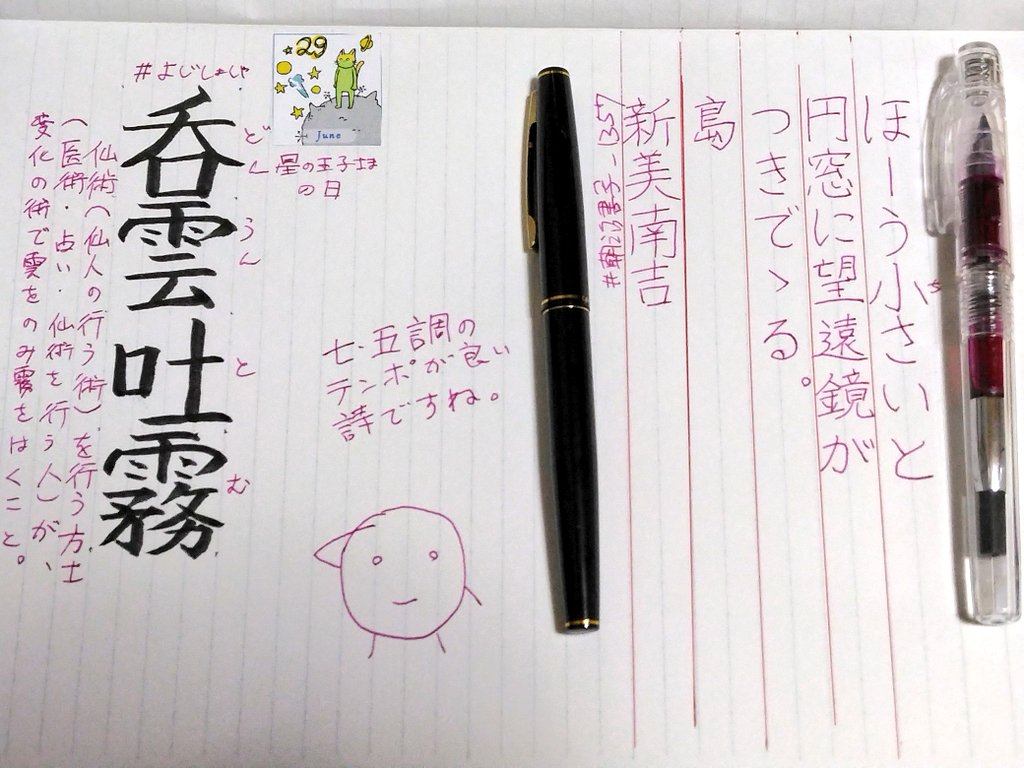 ほーう小さいと
ち
円窓に望遠鏡が
つきでゝる。
島
新美南吉
29
June
星の王子さま
の日
七・五調の
テンポが良い
詩ですね。
#よじしょじゃ
呑雲吐霧
どん うん と む
仙術(仙人の行う術)を行う方士
(医術・占い・仙術を行う人)が、
変化の術で雲をのみ霧をはくこと。